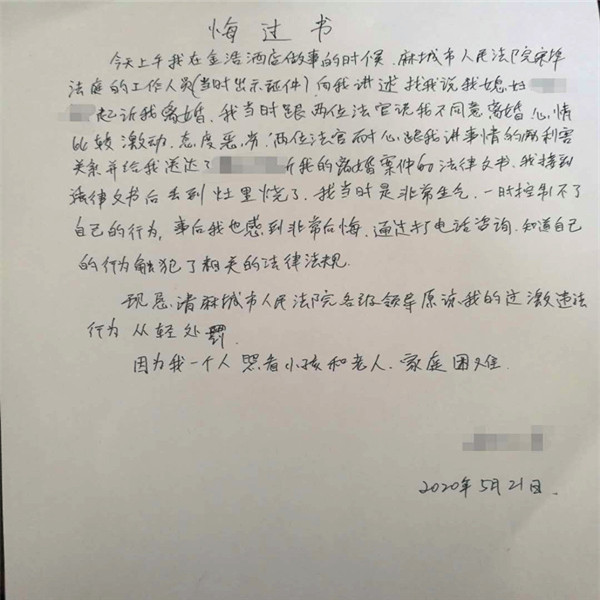 悔过书
今天上午我在金浩酒店做事的时候,麻城市人民法院宋埠
法庭的工作人员(当时出示证件)向我讲述找我说我媳妇
起诉我离婚,我当时跟两位法官说我不同意离婚心情
比较激动,态度恶劣,两位法官耐心跟我讲事情的利害
关系并给我送达了 诉我的离婚案件的法律文书,我接到
法律文书后丢到灶里烧了,我当时是非常生气,一时控制不了
自己的行为,事后我也感到非常后悔,通过打电话咨询,知道自己
的行为触犯了相关的法律法规.
现恳请麻城市人民法院各级领导原谅我的过激违法
行为从轻处罚.
因为我一个人 照看小孩和老人.家庭困难.
2020年5月21日.